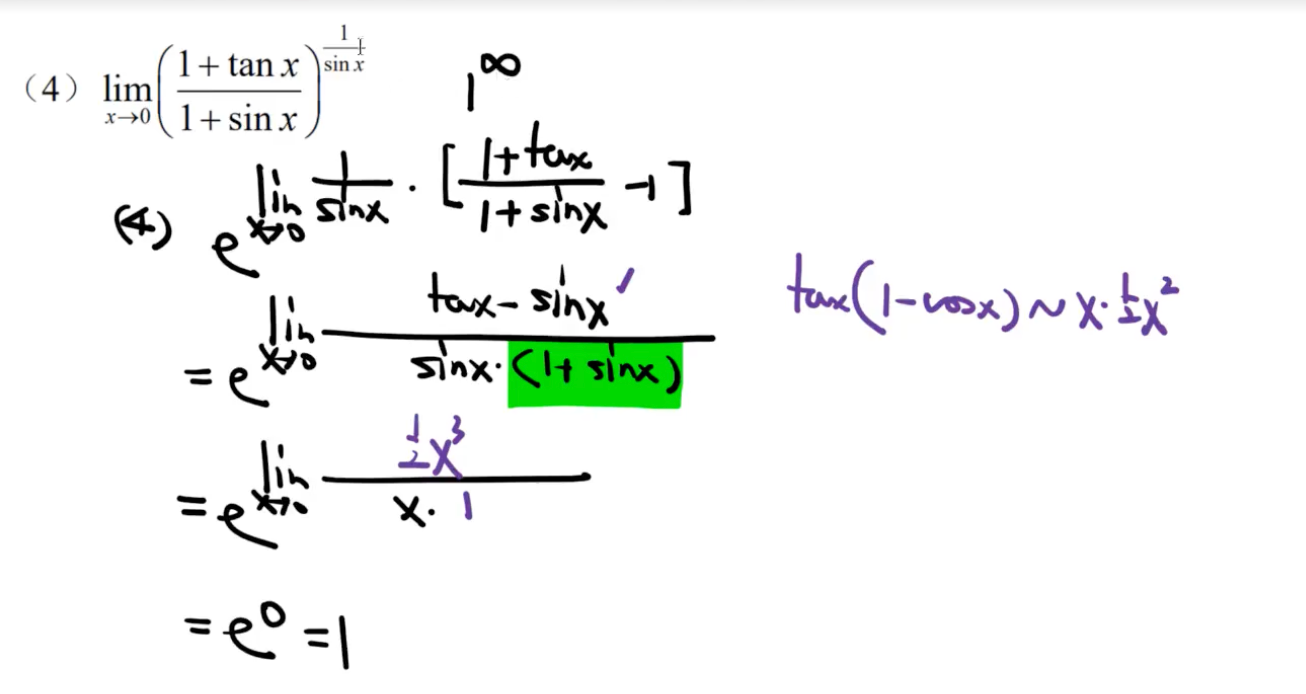 (4) lim x→0 ((1+tan x)/(1+sin x))^(1/sin x)
1^∞
(4) e^(lim x→0 1/sinx · [(1+tanx)/(1+sinx) -1])
= e^(lim x→0 (tanx - sinx)/(sinx·(1+sinx)))
tanx(1-cosx) ~ x·1/2x²
= e^(lim x→0 (1/2x³)/(x·1))
= e^0 = 1